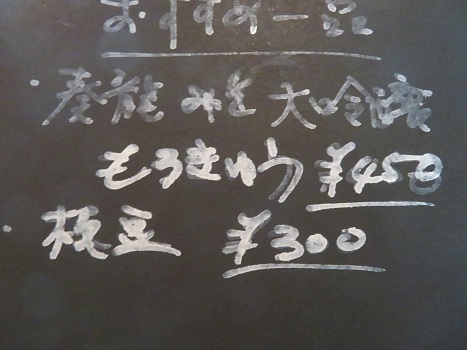 おすすめ一品
・奏龍みそ大吟醸
もろきゅう ¥450
・枝豆 ¥300